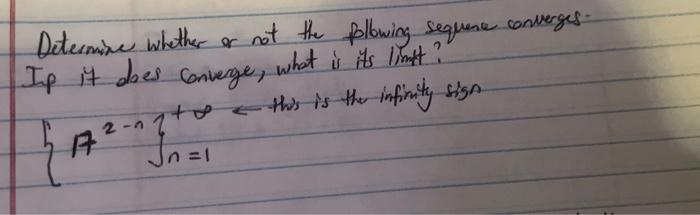 Determine whether or not the following sequence converges.
If it does converge, what is its limit?
{ 17^{2-n} }_{n=1}^{+∞} ← this is the infinity sign